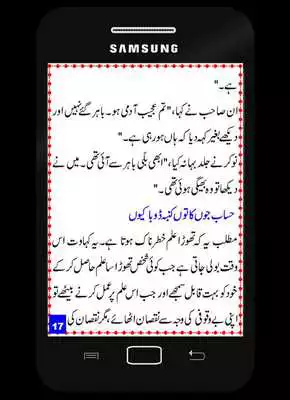 SAMSUNG
ہے۔"
ان صاحب نے کہا، "تم عجیب آدمی ہو۔ باہر گئے نہیں اور
دیکھے بغیر کہہ دیا کہ ہاں ہو رہی ہے۔"
نوکر نے جلد بہانہ کیا، "ابھی بلی باہر سے آئی تھی۔ میں نے
دیکھا تو وہ بھیگی ہوئی تھی۔"
حساب جوں کا توں کنبہ ڈوبا کیوں
مطلب یہ کہ تھوڑا علم خطرناک ہوتا ہے۔ یہ کہاوت اس
وقت بولی جاتی ہے جب کوئی شخص تھوڑا سا علم حاصل کر کے
خود کو بہت قابل سمجھے اور جب اس علم پر عمل کرنے بیٹھے تو
اپنی بے وقوفی کی وجہ سے نقصان اٹھائے، مگر نقصان کی
17